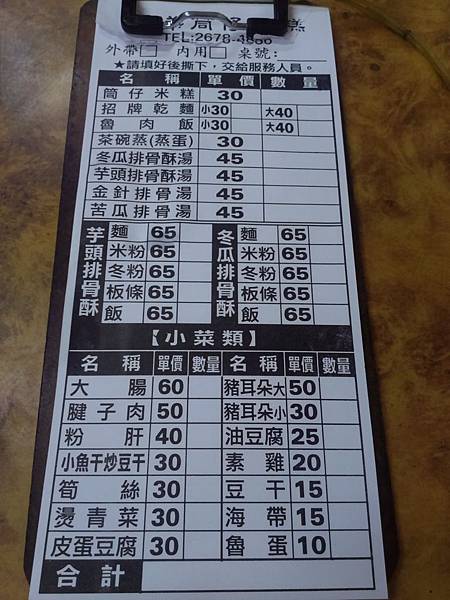 筒仔 糕
TEL:2678-4866
外帶□ 內用□ 桌號:
★請填好後撕下,交給服務人員。
名稱 單價 數量
筒仔米糕 30
招牌乾麵 小30 大40
魯肉飯 小30 大40
茶碗蒸(蒸蛋) 30
冬瓜排骨酥湯 45
芋頭排骨酥湯 45
金針排骨湯 45
苦瓜排骨湯 45
芋頭排骨酥
麵 65
米粉 65
冬粉 65
板條 65
飯 65
冬瓜排骨酥
麵 65
米粉 65
冬粉 65
板條 65
飯 65
【小菜類】
名稱 單價 數量 名稱 單價 數量
大腸 60 豬耳朵大 50
腱子肉 50 豬耳朵小 30
粉肝 40 油豆腐 25
小魚干炒豆干 30 素雞 20
筍絲 30 豆干 15
燙青菜 30 海帶 15
皮蛋豆腐 30 魯蛋 10
合計